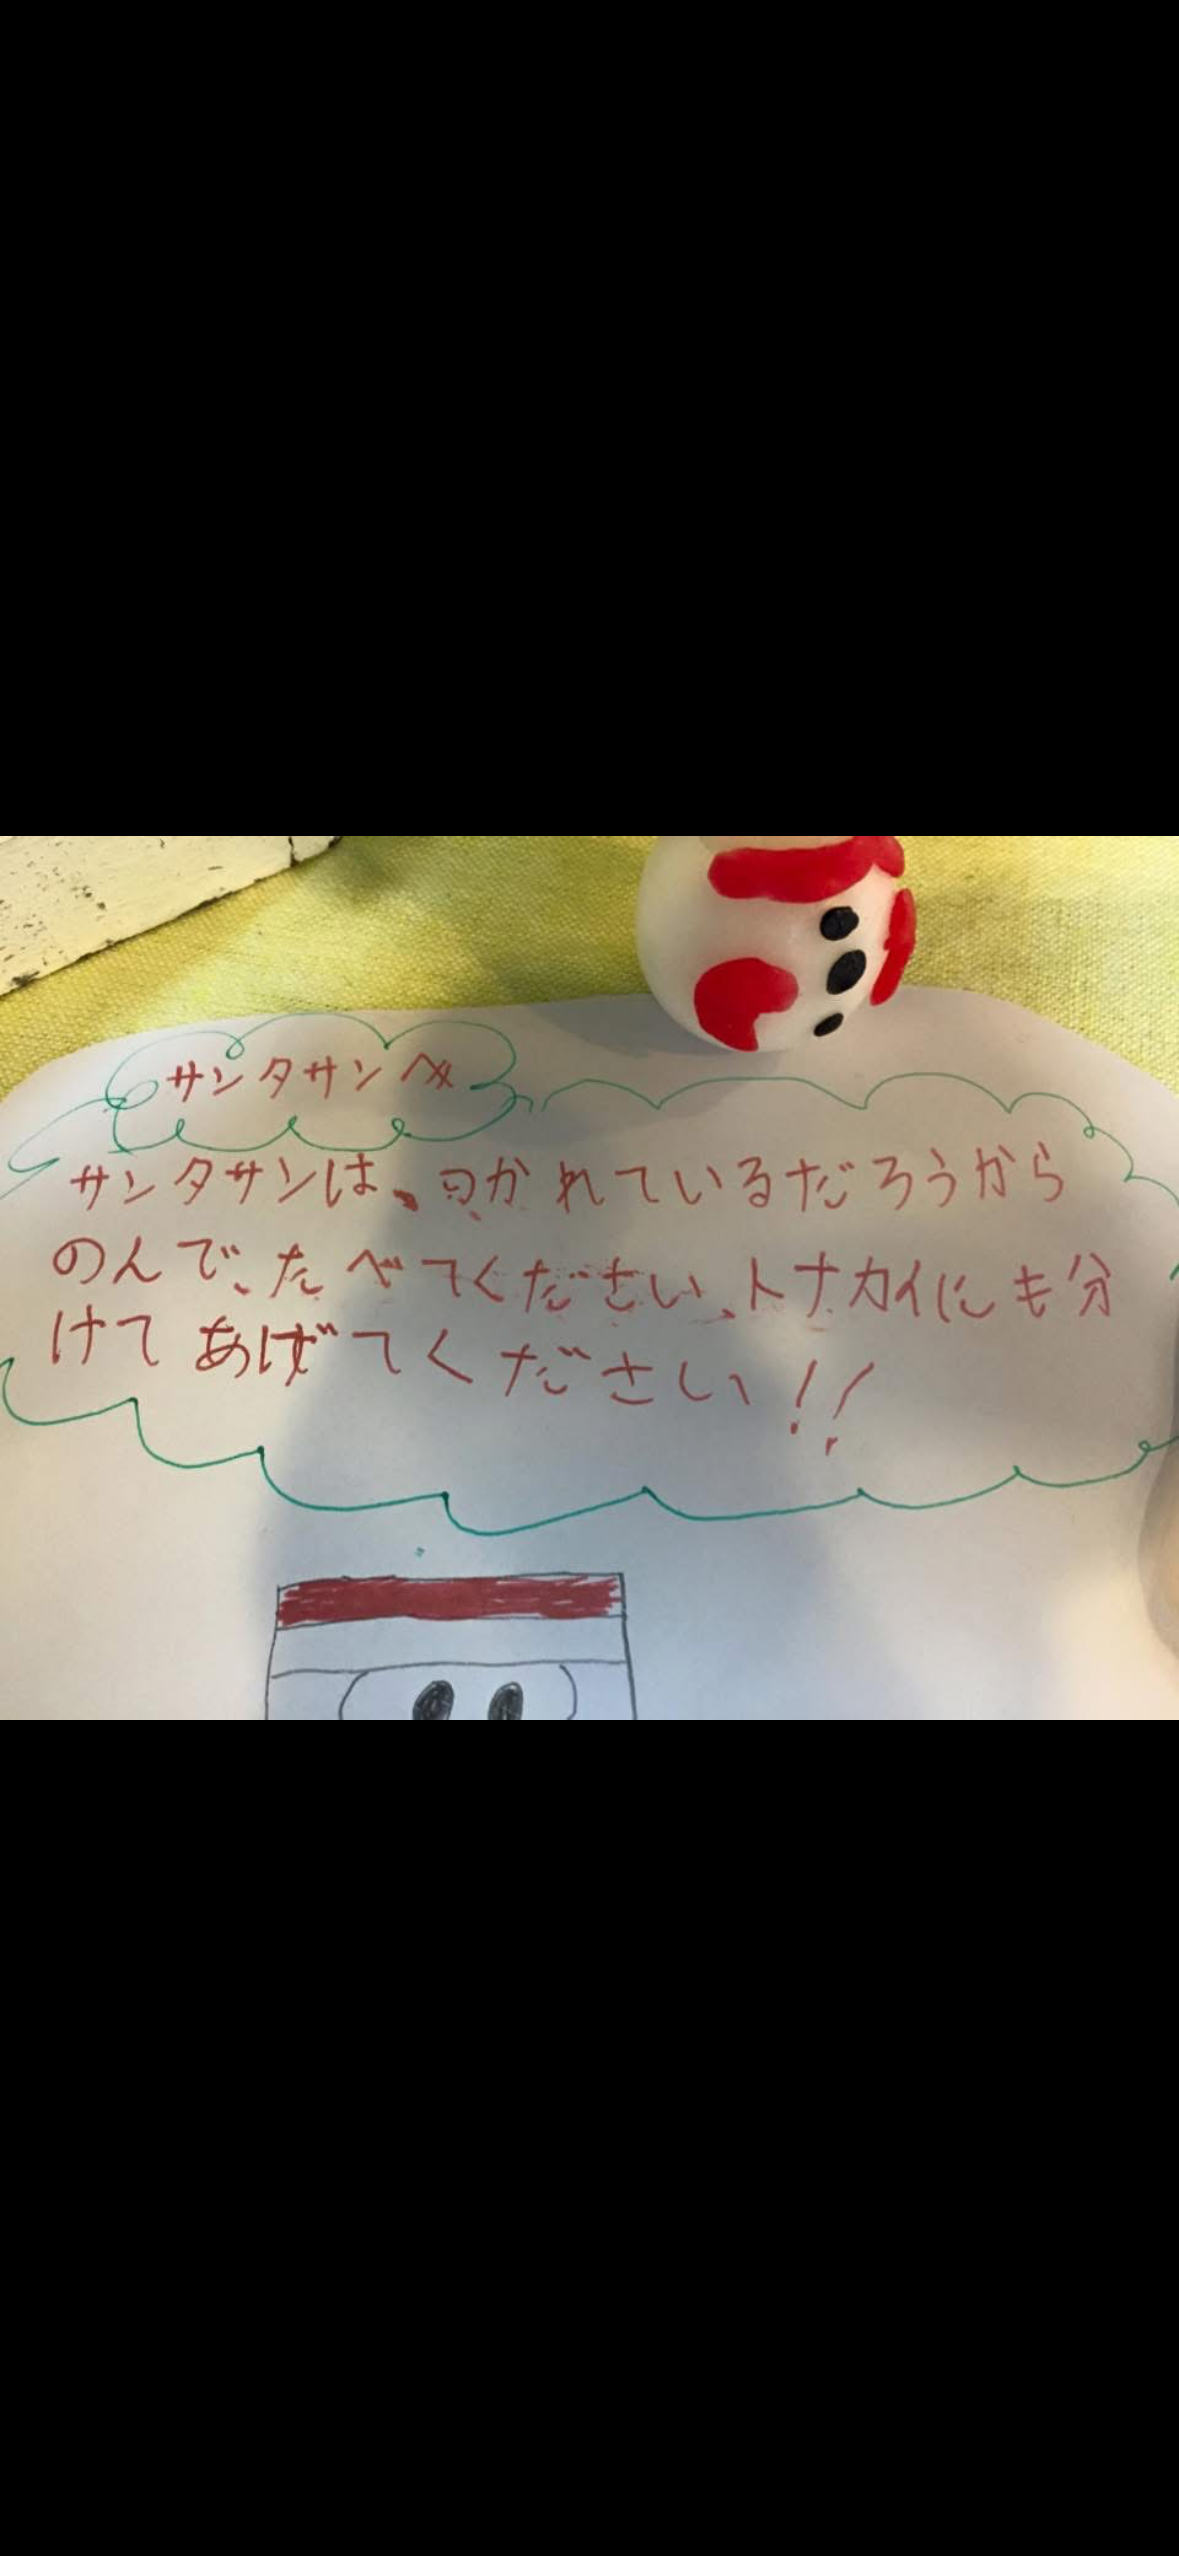 サンタサンへ
サンタサンは、つかれているだろうから
のんで、たべてください、トナカイにも分
けてあげてください!!